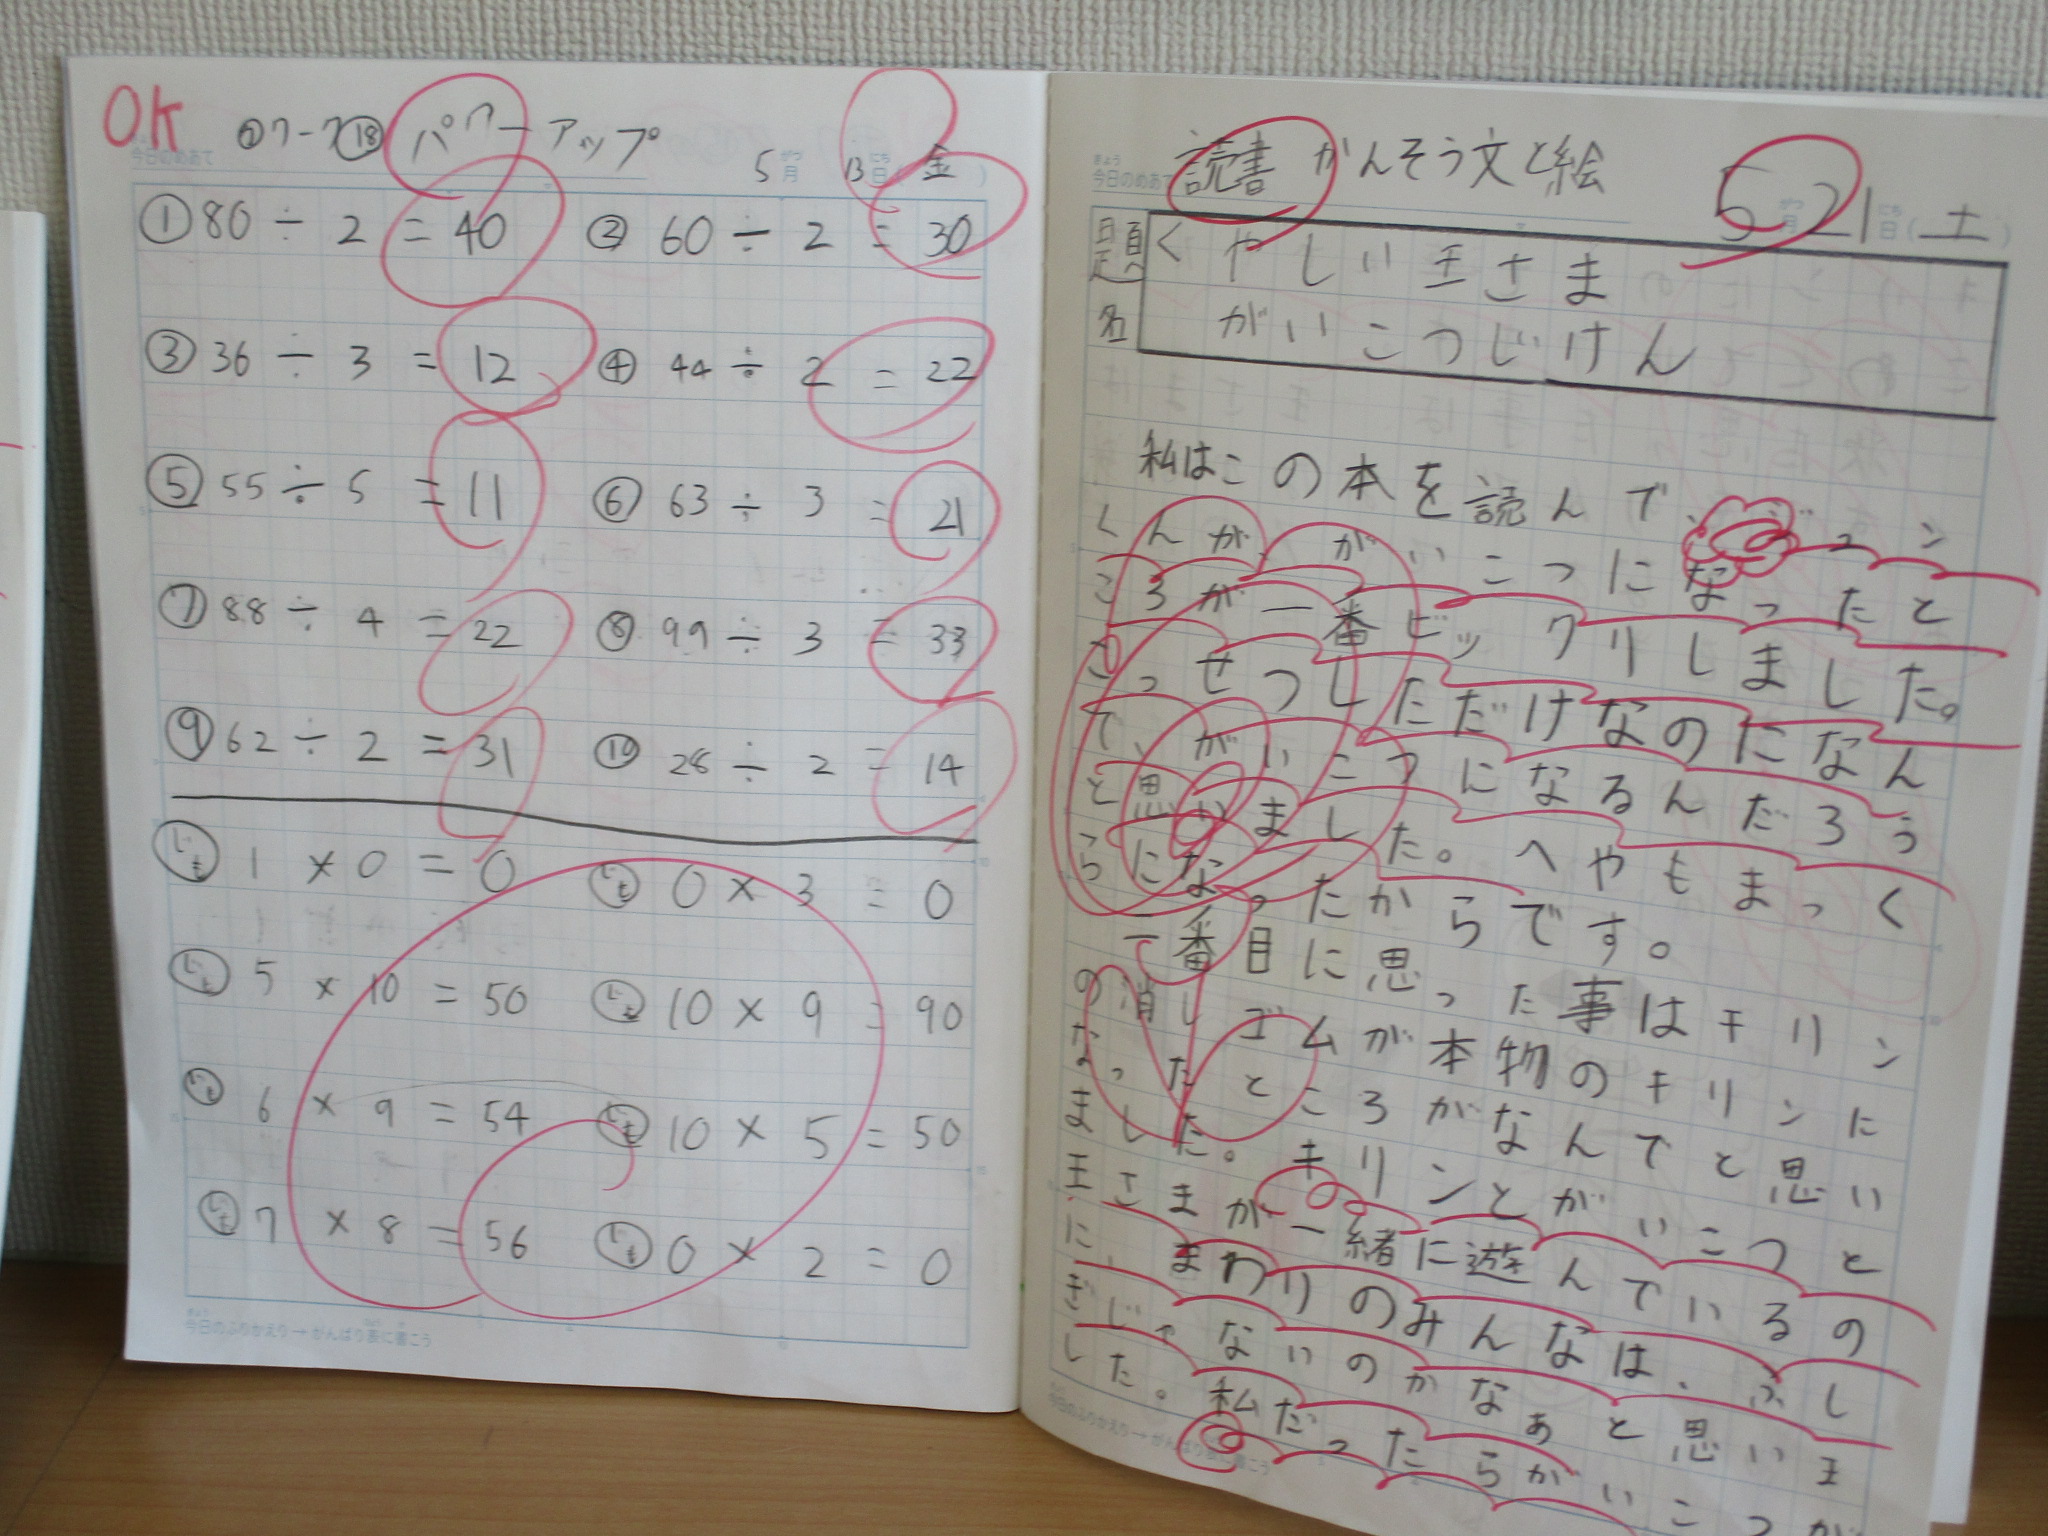 OK
②ワーク⑱ パワーアップ
今日のめあて
5月13日(金)
①80÷2=40 ②60÷2=30
③36÷3=12 ④44÷2=22
⑤55÷5=11 ⑥63÷3=21
⑦88÷4=22 ⑧99÷3=33
⑨62÷2=31 ⑩28÷2=14
じも 1×0=0 じも 0×3=0
じも 5×10=50 じも 10×9=90
じも 6×9=54 じも 10×5=50
じも 7×8=56 じも 0×2=0
今日のふりかえり→がんばり表に書こう
読書かんそう文と絵
今日のめあて
5月21日(土)
題名
くやしい王さま
がいこつじけん
私はこの本を読んで、ジュン
くんが、がいこつになったと
ころが一番ビックリしました。
さっせつしただけなのになん
で、がいこつになるんだろう
と思いました。へやもまっく
らになったからです。
二番目に思った事はキリン
の消しゴムが本物のキリンに
なったところがなんでと思い
ました。キリンとがいこつと
王さまが一緒に遊んでいるの
に、まわりのみんなは、ふし
ぎじゃないのかなぁと思いま
した。私だったらがいこつが